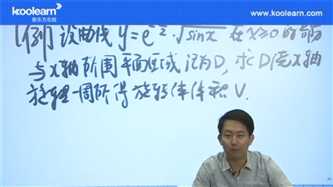 koolearn
新东方在线
www.koolearn.com
[例] 设曲线 y=e^{-x/2}·√sinx 在 x≥0 的部分
与x轴所围平面区域记为D, 求D绕x轴
旋转一周所得旋转体体积V.